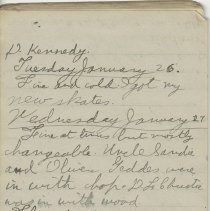 D. Kennedy.
Tuesday January 26.
Fine and cold I got my
new skates.
Wednesday January 27
Fine at times but mostly
changeable. Uncle Sandie
and Oliver Geddes were
in with chop. D L Christie
was in with wood